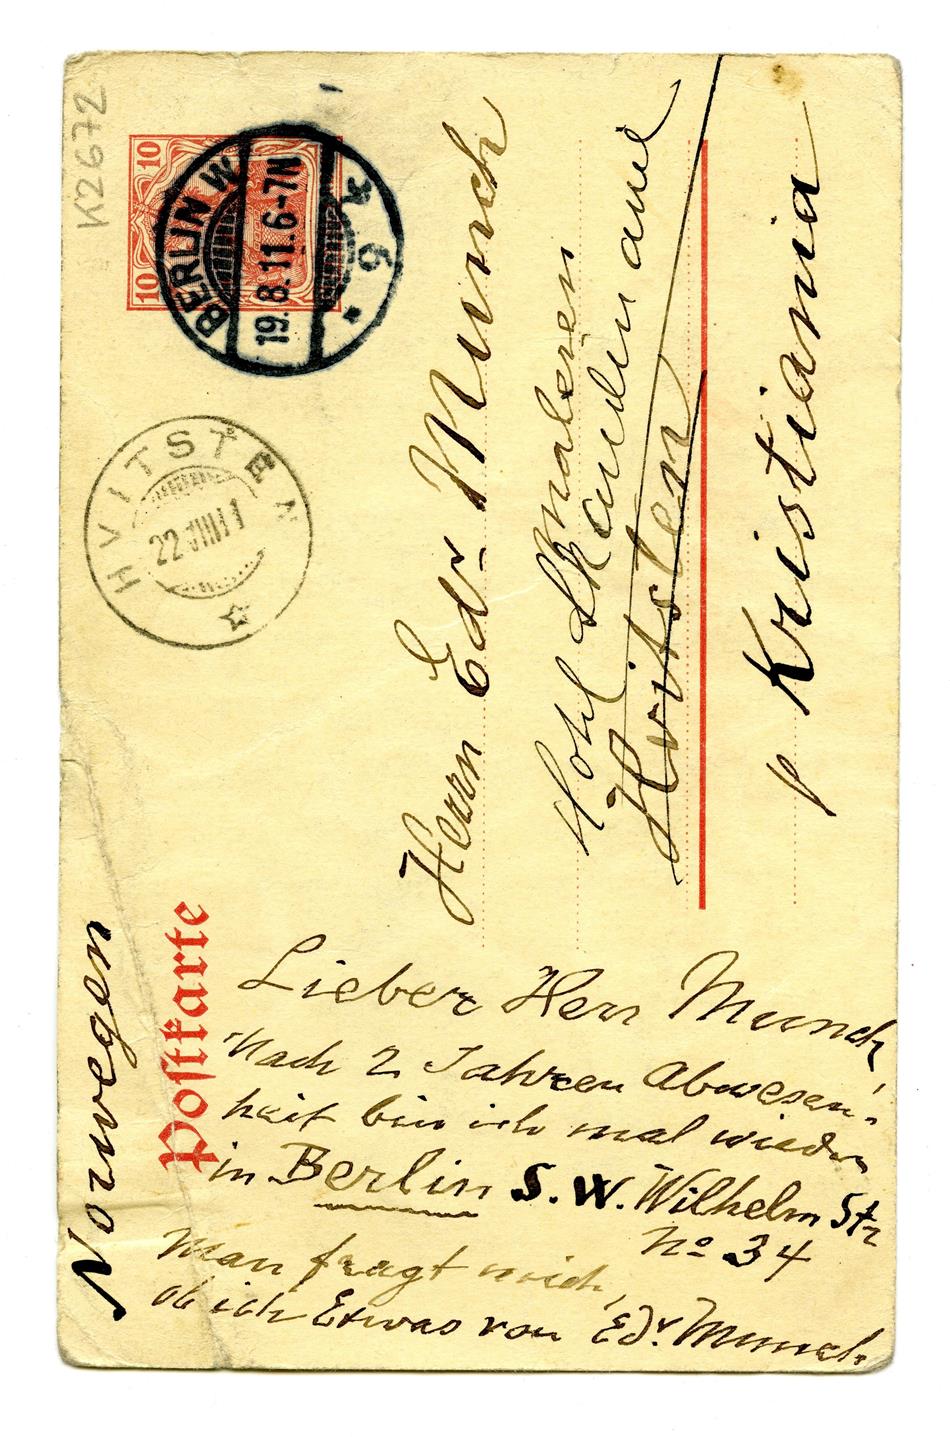 K2672
10 10
BERLIN W
19.8.11.6-7N
* 9 *
HVITSTEN
22 VIII 11
Norwegen
Postkarte
Herrn Edv. Munch
Maleren
Hotel
Hvitsten
p Kristiania
Lieber Herr Munch
Nach 2 Jahren Abwesen-
heit bin ich mal wieder
in Berlin S.W. Wilhelm Str
No 34
Man fragt mich,
ob ich Etwas von Edv. Munch